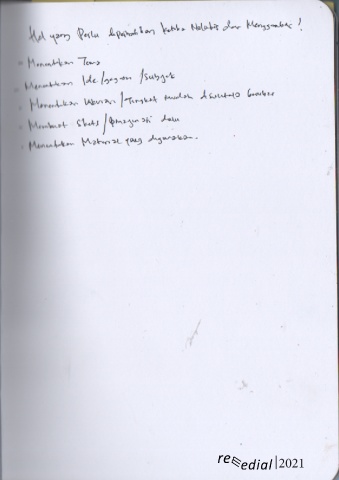 Hal yang Perlu diperhatikan ketika Melukis dan Menggambar!
Menentukan Tema
Menentukan Ide/gagasan/Subyek
Menentukan Warna/Tingkat
Membuat Skets/imaginasi dulu
Menentukan Material yang digunakan.
remedial|2021